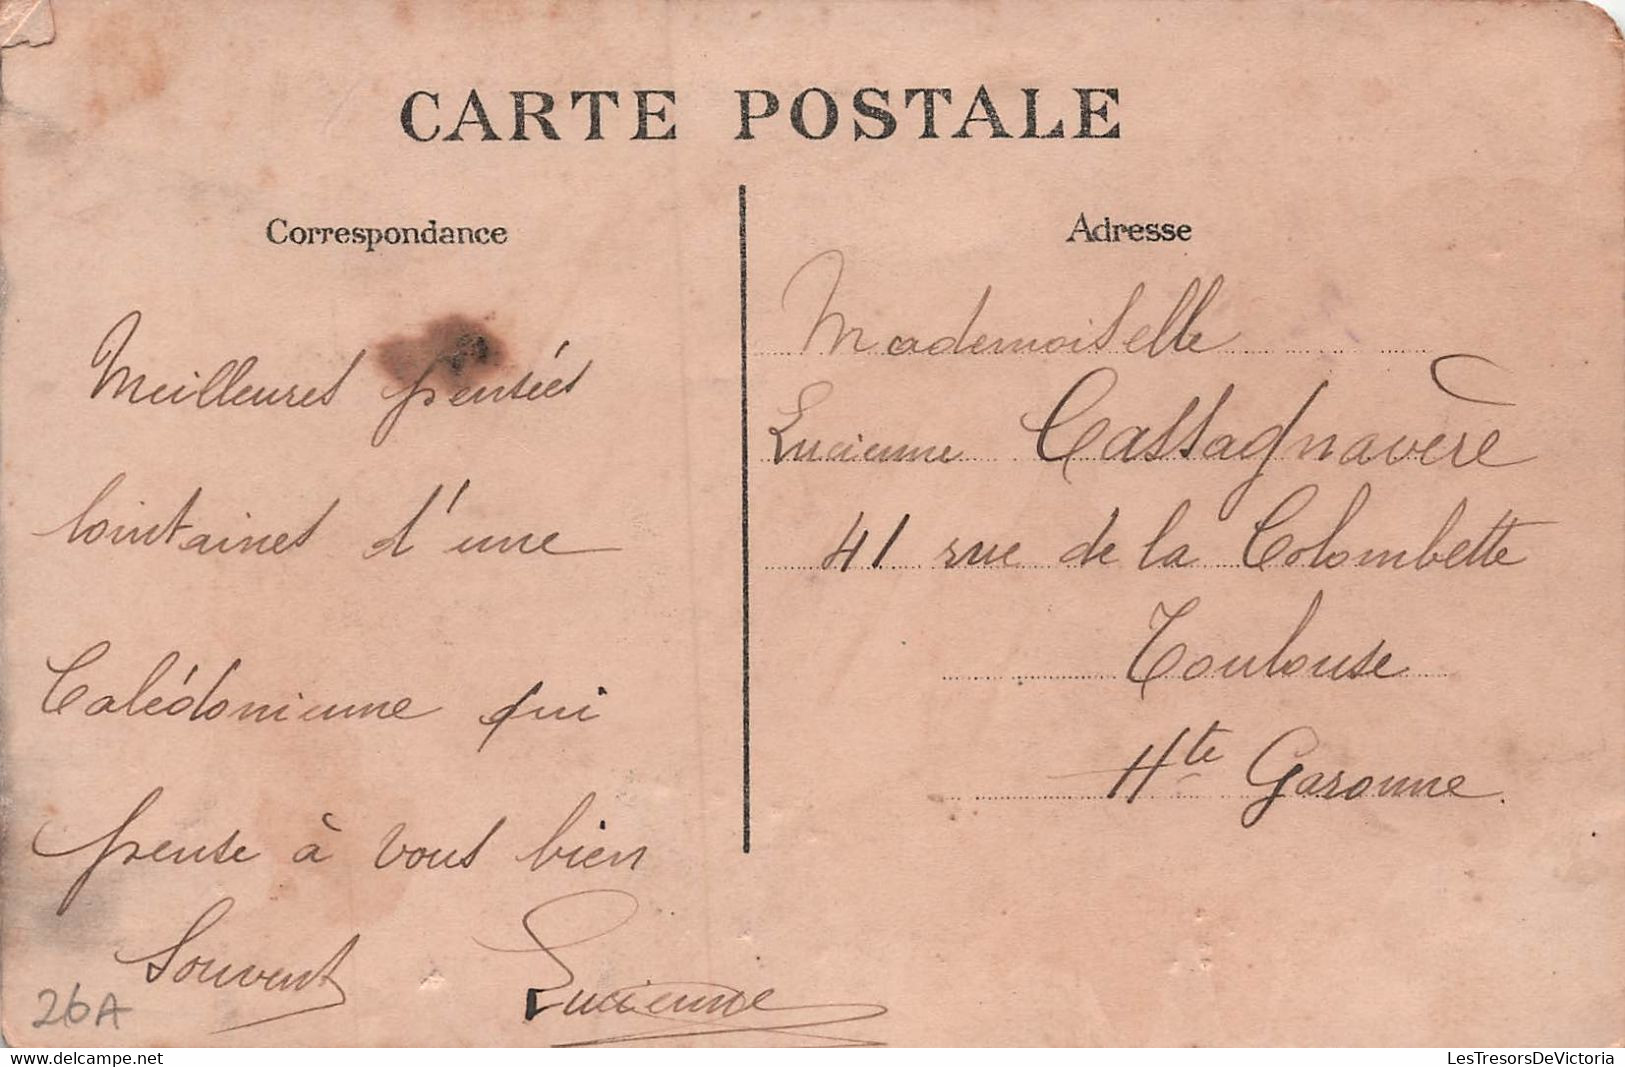 CARTE POSTALE
Correspondance
Meilleures pensées
lointaines d'une
Calédonienne qui
pense à vous bien
souvent Lucienne
26A
Adresse
Mademoiselle
Lucienne Cassagnavère
41 rue de la Colombette
Toulouse
Hte Garonne.
www.delcampe.net
LesTresorsDeVictoria